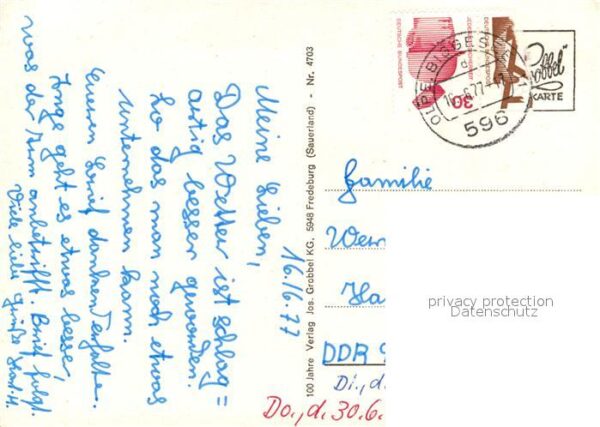 16./6.77
Meine Lieben,
Das Wetter ist schlag=
artig besser geworden.
so das man noch etwas
unternehmen kann.
Eueren Brief dankend erhalten.
Inge geht es etwas besser,
was der anbetrifft. Brief folgt.
Viele liebe Grüße
100 Jahre Verlag Jos. Grobbel KG, 5948 Fredeburg (Sauerland) - Nr. 4703
DEUTSCHE BUNDESPOST
30
DEUTSCHE BUNDESPOST
OLPE BIGGESEE
d
16.-6.77
596
Grobbel"
KARTE
Familie
Wer
Ha
privacy protection
Datenschutz
DDR 9
Di., d.
Do., d. 30.6.